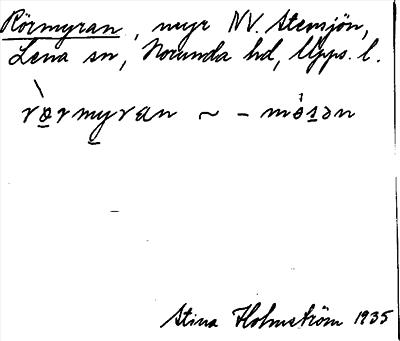 Rörmyran, myr NV. Stensjön,
Lena sn, Norunda hd, Upps. l.
rø̀rmyran ~ - mósən
Stina Holmström 1935